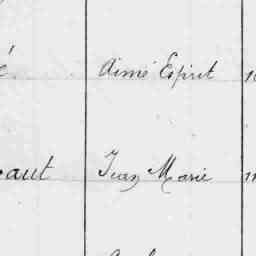 é Aimé Esprit 1
aut Jean Marie 1